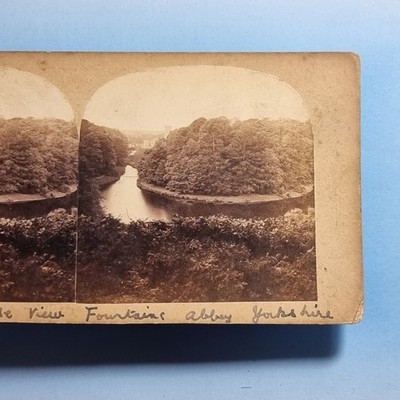 View Fountains Abbey Yorkshire